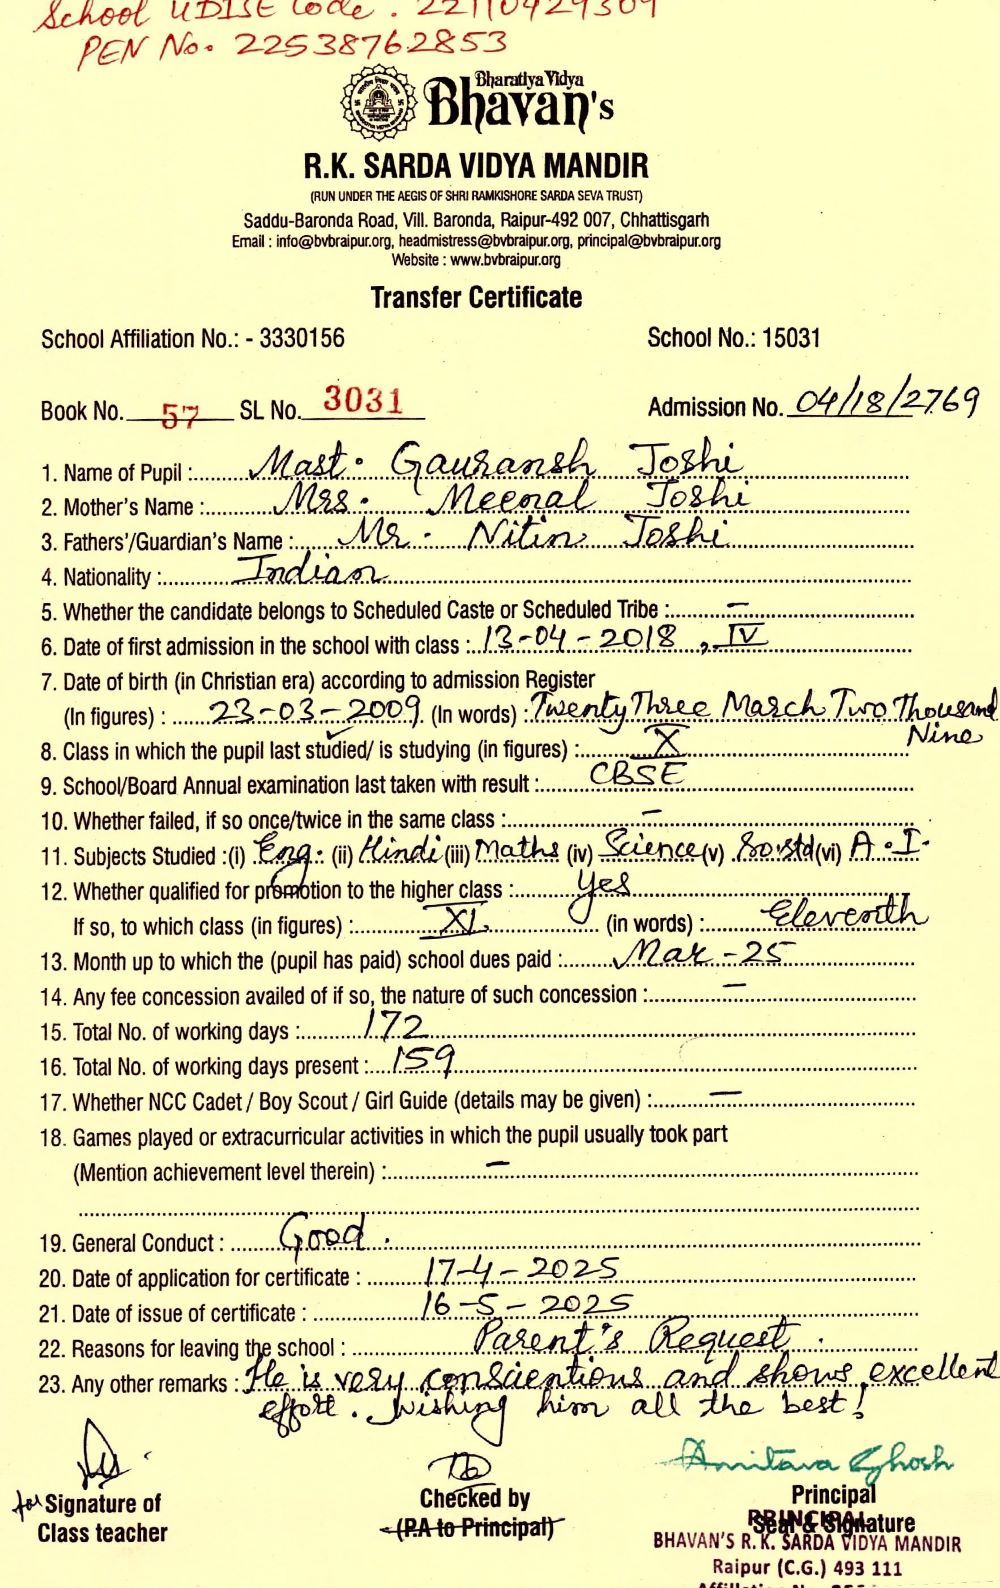 School UDISE Code . 22110429309
PEN No. 22538762853
Bharatiya Vidya
Bhavan's
R.K. SARDA VIDYA MANDIR
(RUN UNDER THE AEGIS OF SHRI RAMKISHORE SARDA SEVA TRUST)
Saddu-Baronda Road, Vill. Baronda, Raipur-492 007, Chhattisgarh
Email : info@bvbraipur.org, headmistress@bvbraipur.org, principal@bvbraipur.org
Website : www.bvbraipur.org
Transfer Certificate
School Affiliation No.: - 3330156 School No.: 15031
Book No. 57 SL No. 3031 Admission No. 04/18/2769
1. Name of Pupil : Mast. Gauransh Joshi
2. Mother's Name : Mrs. Meenal Joshi
3. Fathers'/Guardian's Name : Mr. Nitin Joshi
4. Nationality : Indian
5. Whether the candidate belongs to Scheduled Caste or Scheduled Tribe : –
6. Date of first admission in the school with class : 13-04-2018, IV
7. Date of birth (in Christian era) according to admission Register
(In figures) : 23-03-2009 (In words) : Twenty Three March Two Thousand
Nine
8. Class in which the pupil last studied/ is studying (in figures) : X
9. School/Board Annual examination last taken with result : CBSE
10. Whether failed, if so once/twice in the same class : –
11. Subjects Studied :(i) Eng. (ii) Hindi (iii) Maths (iv) Science (v) So.std (vi) A.I.
12. Whether qualified for promotion to the higher class : Yes
If so, to which class (in figures) : XI (in words) : Eleventh
13. Month up to which the (pupil has paid) school dues paid : Mar-25
14. Any fee concession availed of if so, the nature of such concession : –
15. Total No. of working days : 172
16. Total No. of working days present : 159
17. Whether NCC Cadet / Boy Scout / Girl Guide (details may be given) : –
18. Games played or extracurricular activities in which the pupil usually took part
(Mention achievement level therein) : –
19. General Conduct : Good.
20. Date of application for certificate : 17-4-2025
21. Date of issue of certificate : 16-5-2025
22. Reasons for leaving the school : Parent's Request.
23. Any other remarks : He is very conscientious and shows excellent
effort. Wishing him all the best!
Amitava Ghosh
for Signature of Checked by Principal
Class teacher (P.A to Principal) Seal & Signature
PRINCIPAL
BHAVAN'S R.K. SARDA VIDYA MANDIR
Raipur (C.G.) 493 111